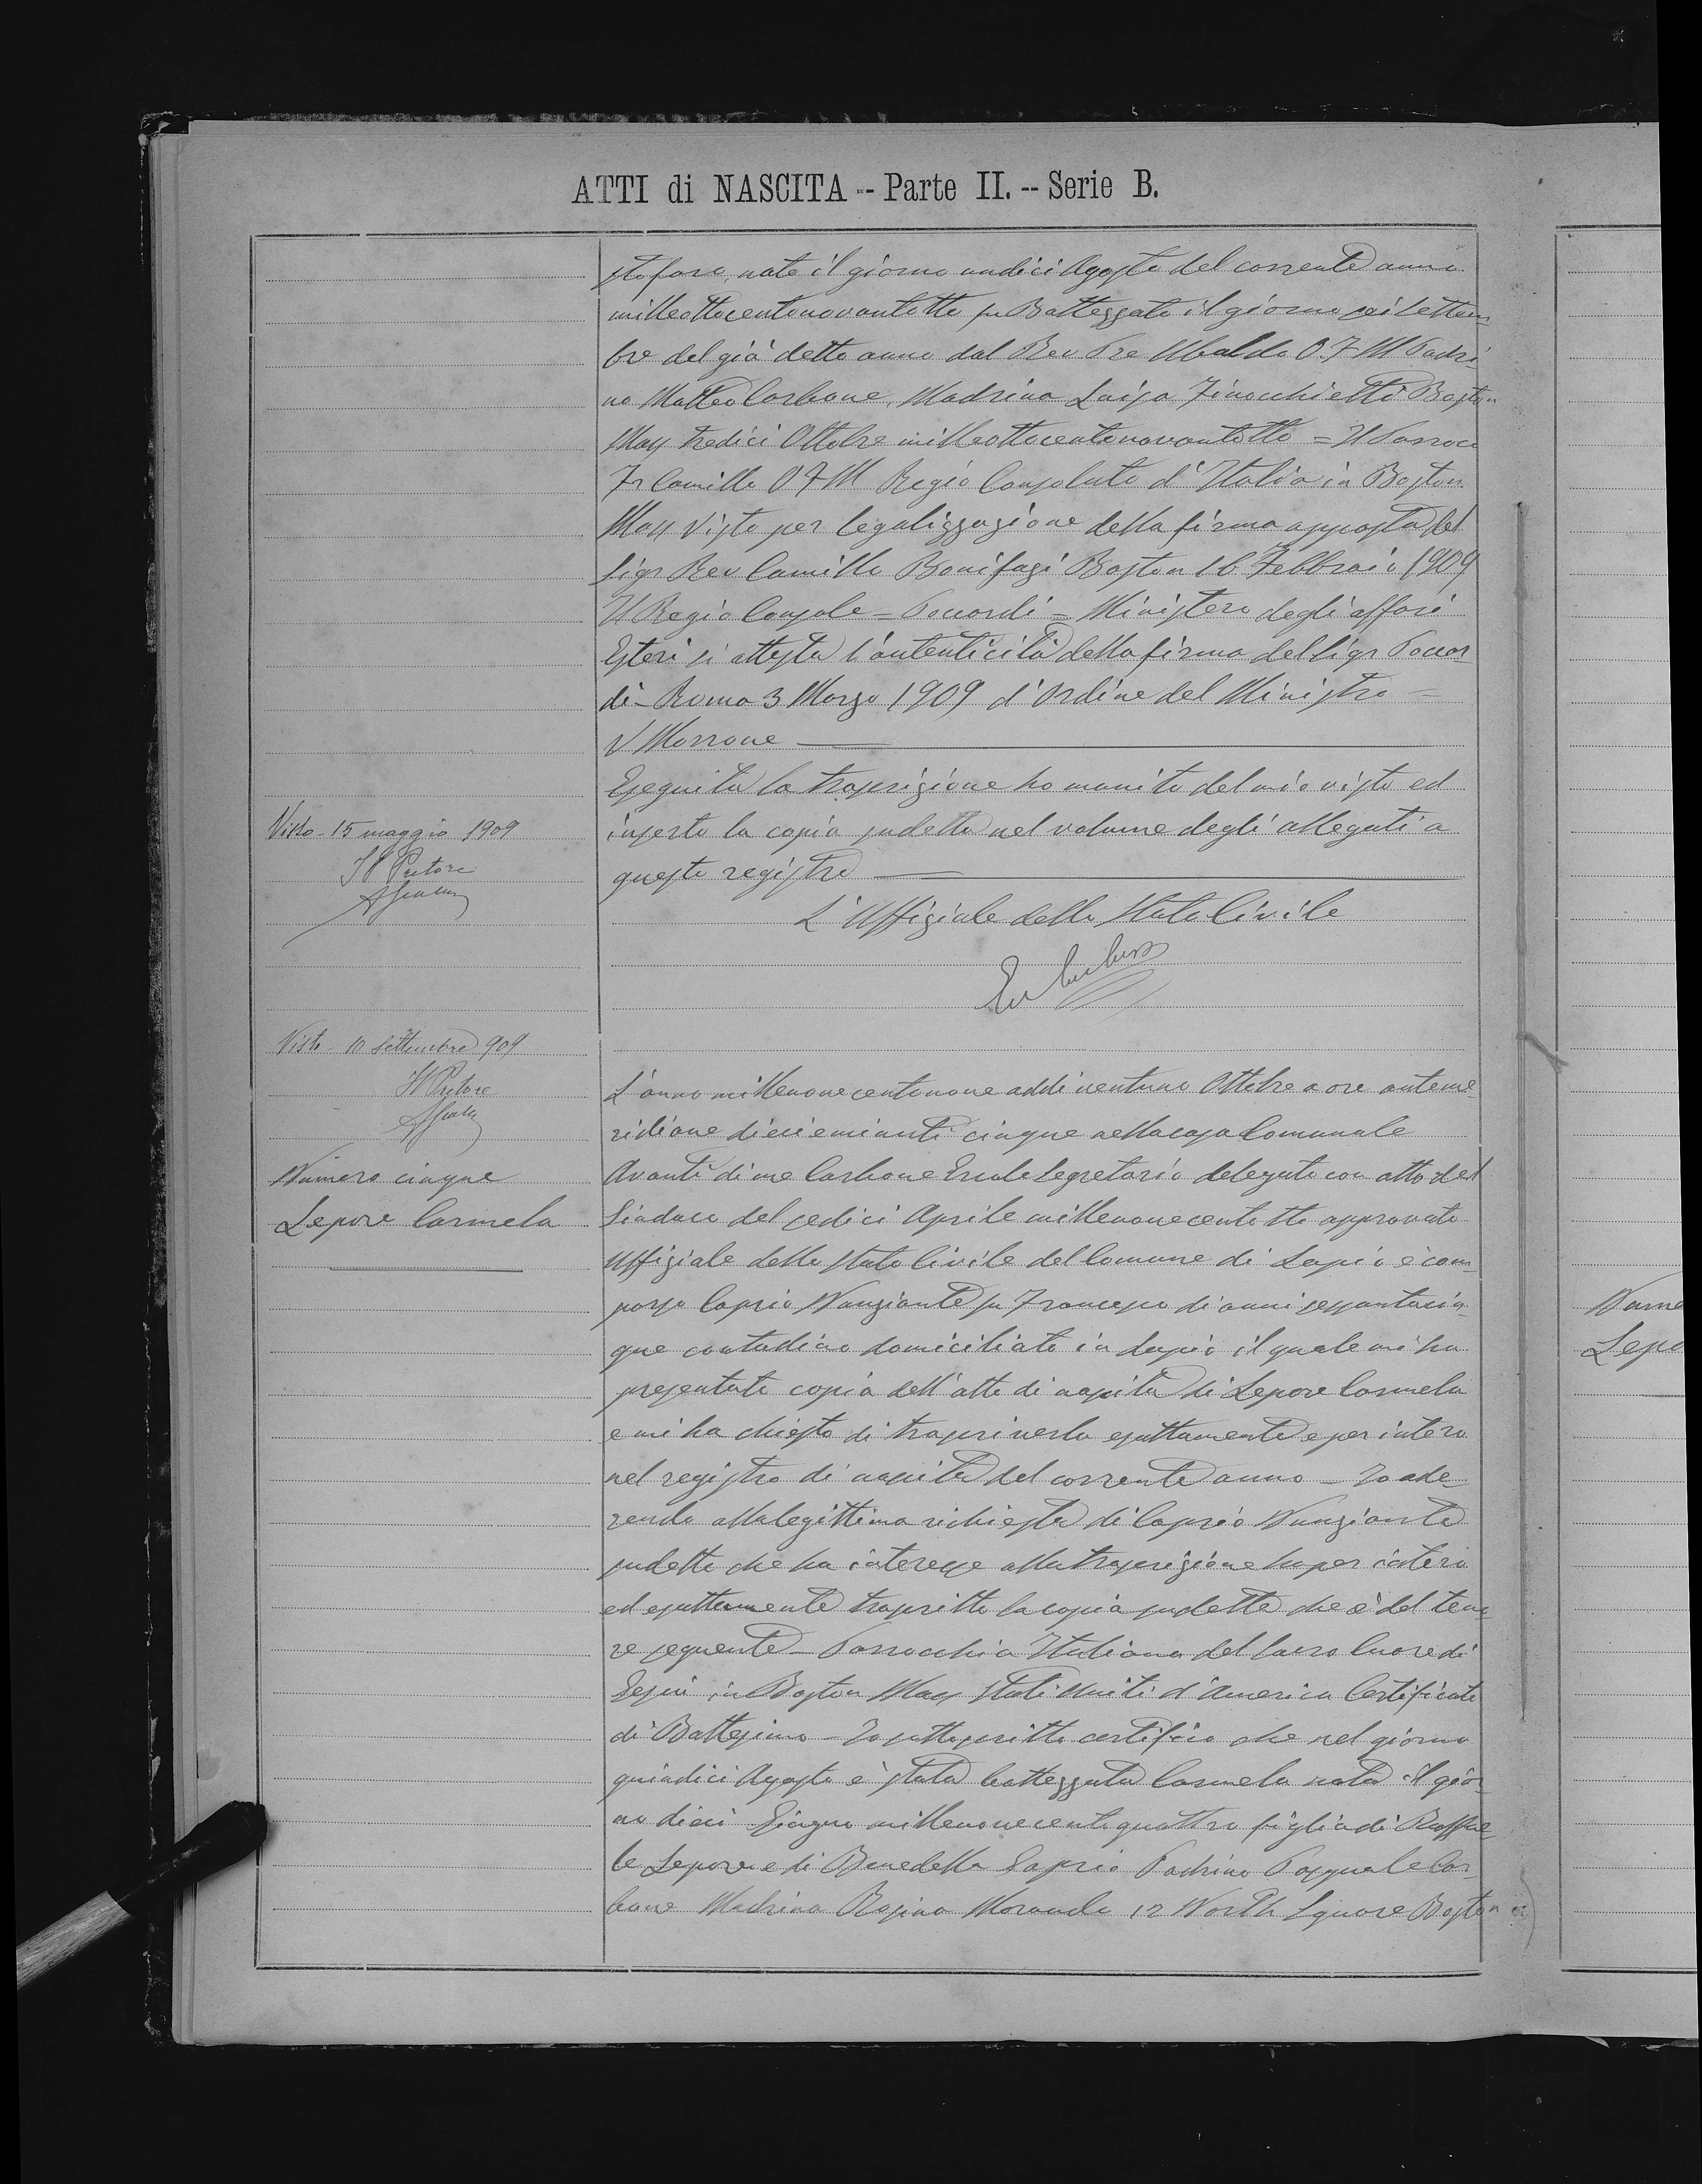 ATTI di NASCITA -- Parte II. -- Serie B.
stofaro, nato il giorno undici Agosto del corrente anno
milleottocentonovantotto fu Battezzato il giorno sei Settem
bre del già detto anno dal Rev Pre Ubaldo O.F M Padri
no Matteo Carbone, Madrina Luisa Finocchietti Boston
Mass tredici Ottobre milleottocentonovantotto = Il Parroco
Fr Camillo O F M Regio Consolato d'Italia in Boston
Mass Visto per legalizzazione della firma apposta del
Sigr Rev Camillo Bonifazi Boston 16 Febbraio 1909
Il Regio Console = Poccardi = Ministero degli affari
Esteri si attesta l'autenticità della firma del Sigr Poccar
di - Roma 3 Marzo 1909 d'Ordine del Ministro =
V Marrone
Eseguita la trascrizione ho munito del mio visto ed
inserto la copia sudetta nel volume degli allegati a
questo registro
L'Uffiziale dello Stato Civile
Visto - 15 maggio 1909
Il Pretore
Visto - 10 Settembre 909
Il Pretore
Numero cinque
Lepore Carmela
L'anno millenovecentonove addi ventuno Ottobre a ore anteme
ridiane dieci e minuti cinque nella casa Comunale
Avanti di me Carbone Ercole Segretario delegato con atto del
Sindaco del sedici Aprile millenovecentotto approvato
Uffiziale dello Stato Civile del Comune di Lapio è com
parso Caprio Nunziante fu Francesco di anni sessantacin
que contadino domiciliato in Lapio il quale mi ha
presentato copia dell'atto di nascita di Lepore Carmela
e mi ha chiesto di trascriverla esattamente e per intero
nel registro di nascita del corrente anno - Io ade
rendo alla legittima richiesta di Caprio Nunziante
sudetto che ha interesse alla trascrizione ho per intero
ed esattamente trascritto la copia sudetta che è del teno
re seguente - Parrocchia Italiana del Sacro Cuore di
Gesù in Boston Mass Stati Uniti d'America Certificato
di Battesimo - Io sottoscritto certifico che nel giorno
quindici Agosto è stata battezzata Carmela nata il gior
no dieci Giugno millenovecentoquattro figlia di Raffae
le Lepore e di Benedetta Caprio Padrino Pasquale Car
bone Madrina Rosina Morando 12 North Square Boston
Nume
Lepo